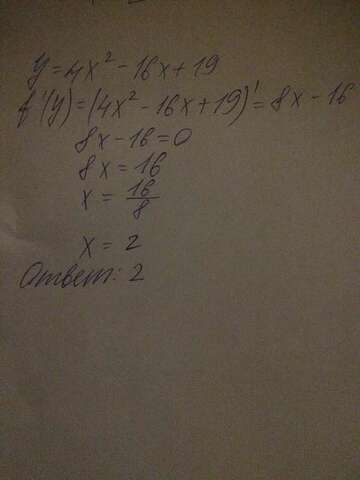 y = 4x² - 16x + 19
f'(y) = (4x² - 16x + 19)' = 8x - 16
8x - 16 = 0
8x = 16
x = 16/8
x = 2
Ответ: 2